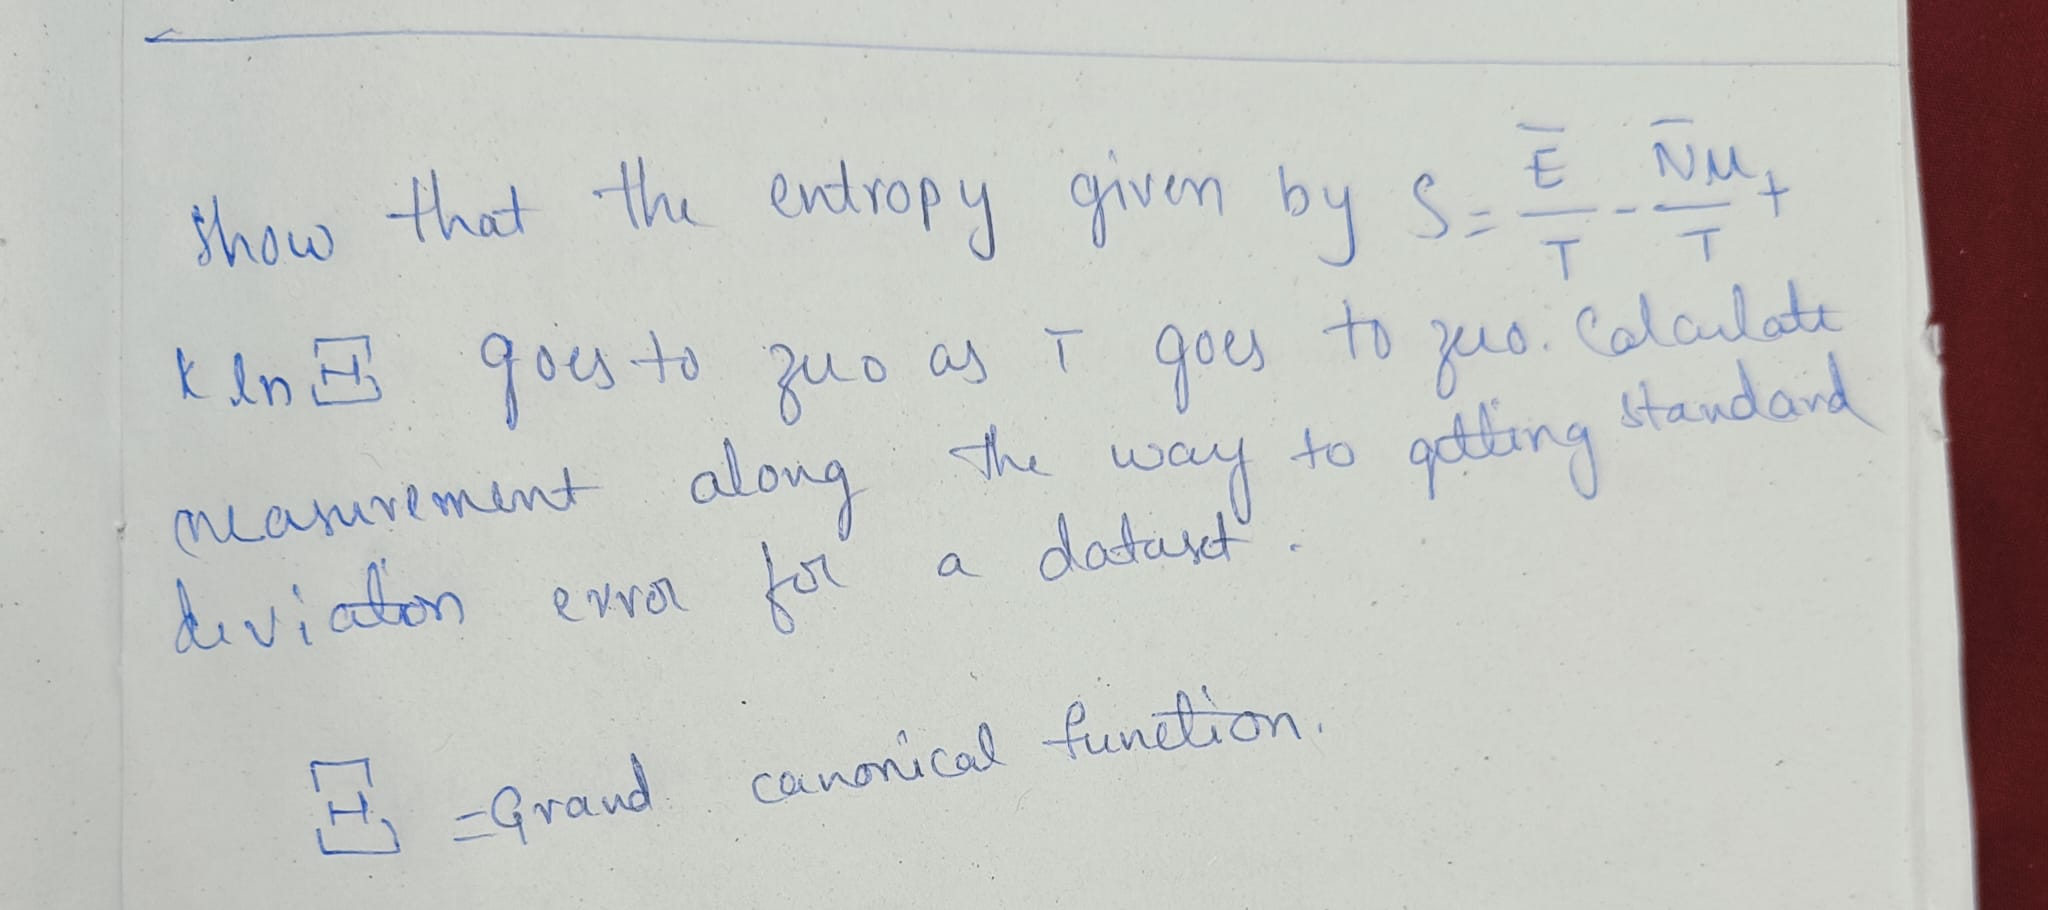 Show that the entropy given by S = Ē/T - N̄μ/T +
k ln Ξ goes to zero as T goes to zero. Calculate
measurement along the way to getting standard
deviation error for a dataset.
Ξ = Grand canonical function.